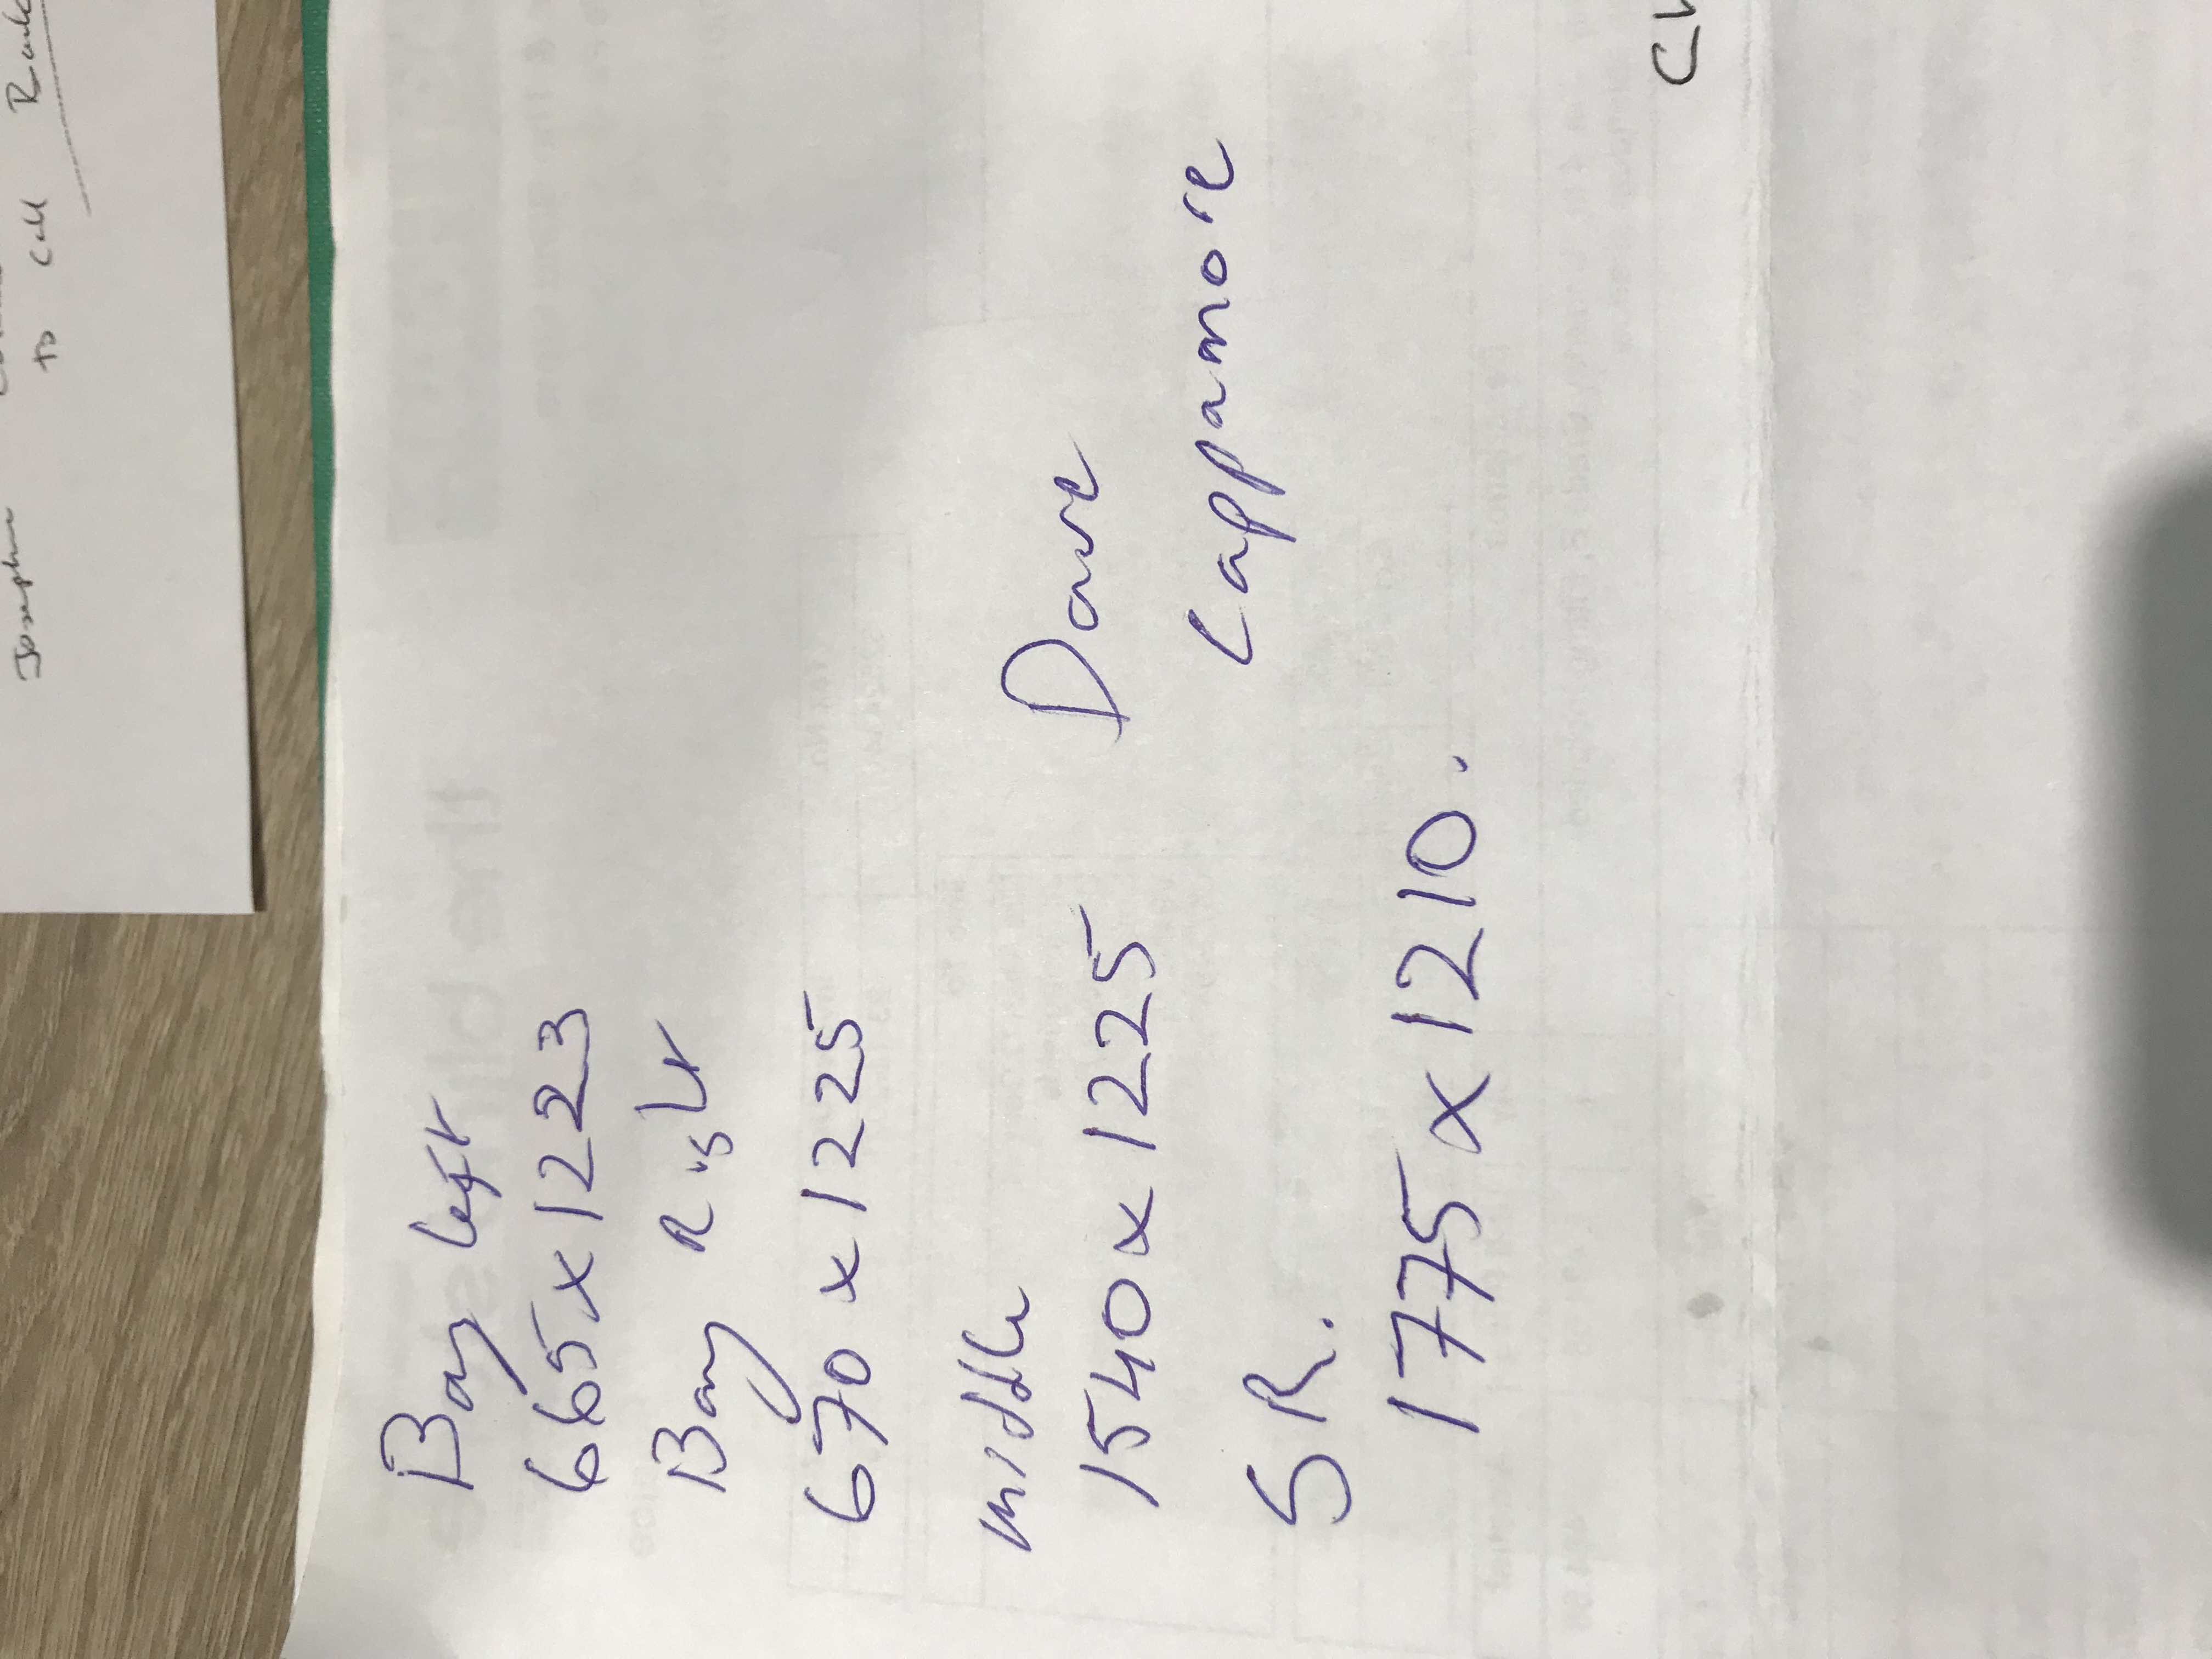 Bay left
665 x 1223
Bay Right
670 x 1225
middle
1540 x 1225
Dave
Cappamore
SR.
1775 x 1210.
Joseph
to call